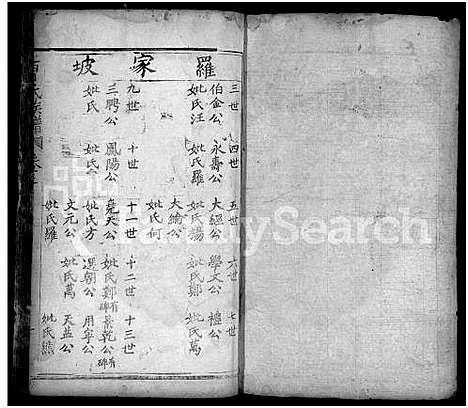 羅家坡
三世 四世 五世 六世 七世
伯金公 永壽公 大經公 學文公 禮公
妣氏汪 妣氏羅 妣氏楊 妣氏鄭 妣氏萬
大綸公
妣氏何
九世 十世 十一世 十二世 十三世
三聘公 鳳陽公 堯天公 妣氏鄭有碑 景乾公有碑
妣氏 妣氏 妣氏方 選朝公 用寧公
文元公 妣氏萬 天益公
妣氏羅 妣氏熊
FamilySearch